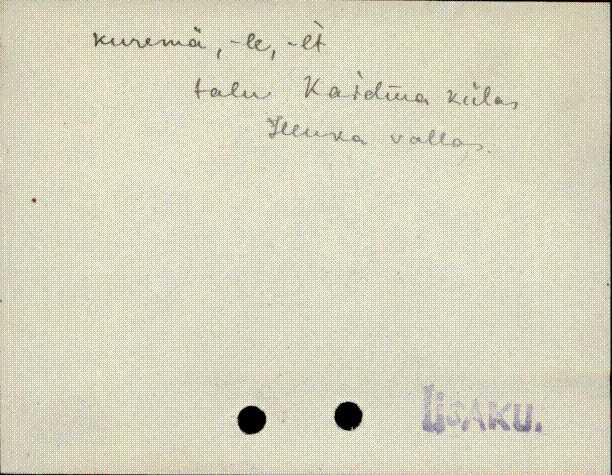 kuremä, -le, -lt
talu Kaidma külas
Illuka vallas.
IISAKU.